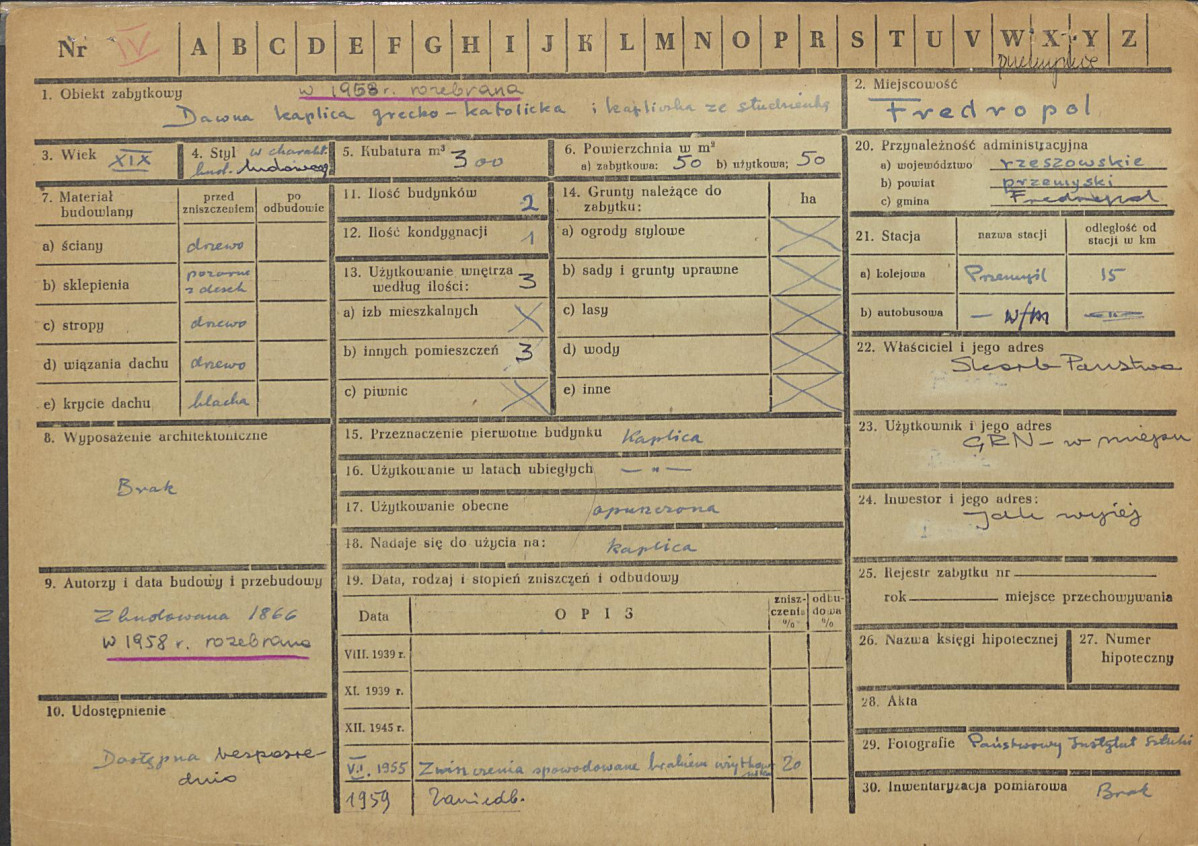 Nr IV A B C D E F G H I J K L M N O P R S T U V W X Y Z
1. Obiekt zabytkowy
w 1958 r. rozebrana
Dawna kaplica grecko-katolicka i kapliczka ze studzienką
2. Miejscowość
Fredropol
3. Wiek XIX
4. Styl w charakt.
bud. ludowego
5. Kubatura m³ 300
6. Powierzchnia w m²
a) zabytkowa: 50 b) użytkowa: 50
7. Materiał budowlany
przed zniszczeniem
po odbudowie
a) ściany drzewo
b) sklepienia pozorne
z desek
c) stropy drzewo
d) wiązania dachu drzewo
e) krycie dachu blacha
8. Wyposażenie architektoniczne
Brak
9. Autorzy i data budowy i przebudowy
Zbudowana 1866
w 1958 r. rozebrana
10. Udostępnienie
Dostępna bezpośre-
dnio
11. Ilość budynków 2
12. Ilość kondygnacji 1
13. Użytkowanie wnętrza 3
według ilości:
a) izb mieszkalnych X
b) innych pomieszczeń 3
c) piwnic X
14. Grunty należące do
zabytku:
ha
a) ogrody stylowe
b) sady i grunty uprawne
c) lasy
d) wody
e) inne
15. Przeznaczenie pierwotne budynku Kaplica
16. Użytkowanie w latach ubiegłych — „ —
17. Użytkowanie obecne opuszczona
18. Nadaje się do użycia na: kaplica
19. Data, rodzaj i stopień zniszczeń i odbudowy
Data OPIS znisz-
czenia
% odbu-
dowa
%
VIII. 1939 r.
XI. 1939 r.
XII. 1945 r.
VII. 1955 Zniszczenia spowodowane brakiem użytkow 20
1959 Zaniedb.
20. Przynależność administracyjna
a) województwo rzeszowskie
b) powiat przemyski
c) gmina Fredropol
21. Stacja nazwa stacji odległość od
stacji w km
a) kolejowa Przemyśl 15
b) autobusowa — w/m — „ —
22. Właściciel i jego adres
Skarb Państwa
23. Użytkownik i jego adres
GRN – w miejscu
24. Inwestor i jego adres:
Jak wyżej
25. Rejestr zabytku nr
rok miejsce przechowywania
26. Nazwa księgi hipotecznej
27. Numer
hipoteczny
28. Akta
29. Fotografie Państwowy Instytut Sztuki
30. Inwentaryzacja pomiarowa Brak